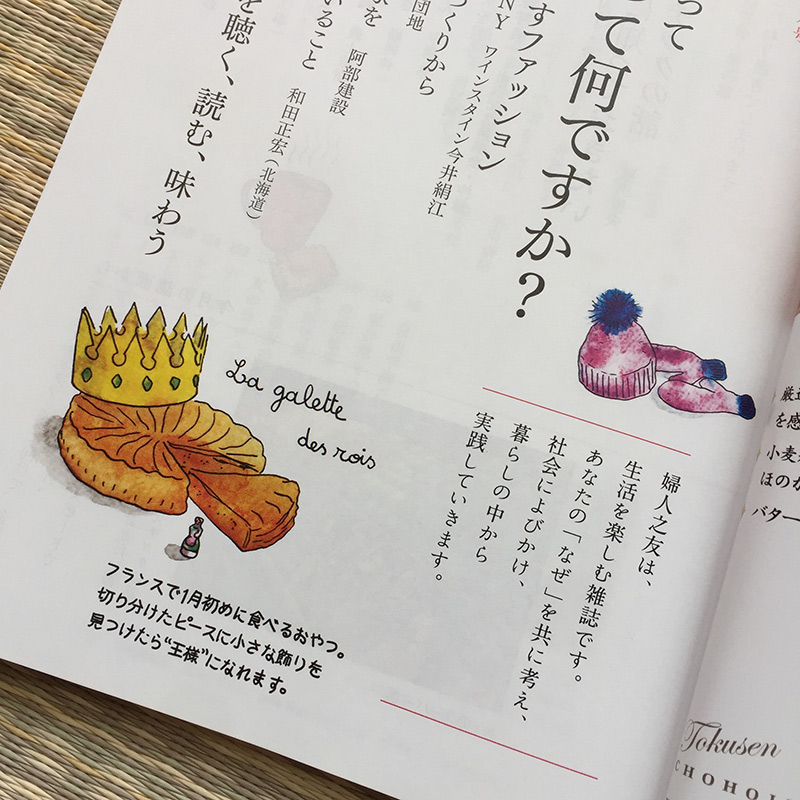 って
って何ですか？
すファッション
NY ワインスタイン今井絹江
づくりから
団地
阿部建設
いること 和田正宏（北海道）
を聴く、読む、味わう
La galette
des rois
フランスで1月初めに食べるおやつ。
切り分けたピースに小さな飾りを
見つけたら“王様”になれます。
婦人之友は、
生活を楽しむ雑誌です。
あなたの「なぜ」を共に考え、
社会によびかけ、
暮らしの中から
実践していきます。
を感
小麦
ほのか
バター
Tokusen
CHOHO